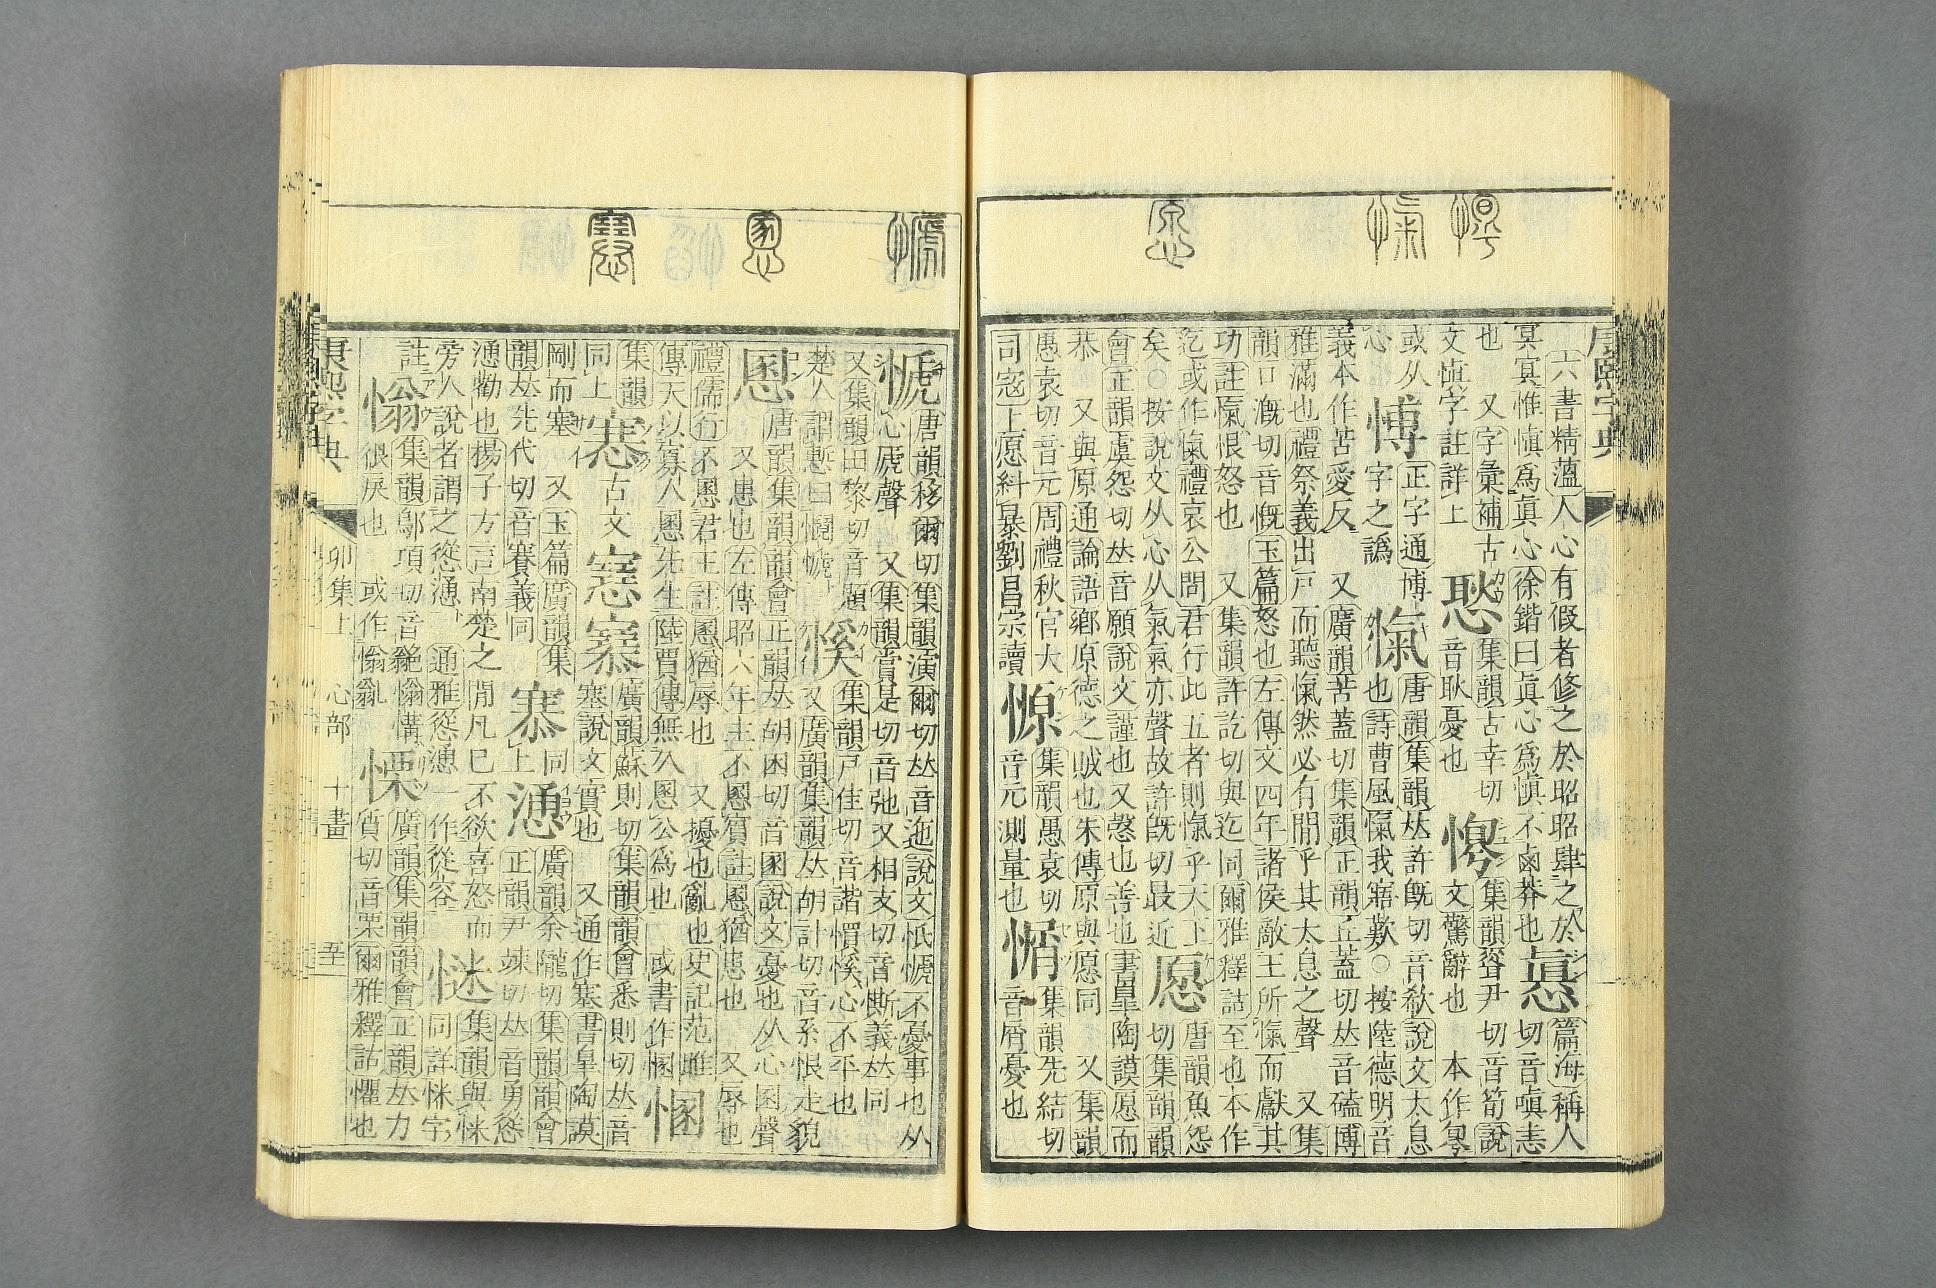 六書精薀人心有假者修之於昭昭肆之於
冥冥惟愼爲眞心徐鍇曰眞心爲愼不鹵莽也
篇海稱人
切音嗔恚
也 又字彙補古
文愼字註詳上
集韻古幸切
音耿憂也
集韻聳尹切音筍說
文驚辭也 本作
或从
心
愽
正字通博
字之譌
愾
唐韻集韻𠀤許旣切音欷說文太息
也詩曹風愾我寤歎○按陸德明音
義本作苦愛反 又廣韻苦蓋切集韻正韻丘蓋切𠀤音磕博
雅滿也禮祭義出戸而聽愾然必有聞乎其太息之聲 又集
韻口漑切音慨玉篇怒也左傳文四年諸侯敵王所愾而獻其
功註愾恨怒也 又集韻許訖切與迄同爾雅釋詁至也本作
迄或作愾禮哀公問君行此五者則愾乎天下
矣○按說文从心从氣氣亦聲故許旣切最近
愿
唐韻魚怨
切集韻韻
會正韻虞怨切𠀤音願說文謹也又愨也善也書臯陶謨愿而
恭 又與原通論語鄕原德之賊也朱傳原與愿同 又集韻
愚袁切音元周禮秋官大
司寇上愿糾暴劉昌宗讀
集韻愚袁切
音元測量也
集韻先結切
音屑憂也
康熙字典
卯集上 心部 十畫
㥴
唐韻移爾切集韻演爾切𠀤音迤說文㥴不憂事也从
心虒聲 又集韻賞是切音弛又相支切音斯義𠀤同
又集韻田黎切音題
楚人謂慙曰㥴
慀
集韻戸佳切音諧慣慀心不平也
又廣韻集韻𠀤胡計切音系恨足貌
慁
唐韻集韻韻會正韻𠀤胡困切音圂說文憂也从心圂聲
又患也左傳昭六年主不慁賓註慁猶患也 又辱也
禮儒行不慁君王註慁猶辱也 又擾也亂也史記范雎
傳天以寡人慁先生陸賈傳無久慁公爲也 或書作㥵
㥵
集韻
同上
古文
廣韻蘇則切集韻韻會悉則切𠀤音
塞說文實也 又通作塞書臯陶謨
剛而塞 又玉篇廣韻集
韻𠀤先代切音賽義同
同
上
慂
廣韻余隴切集韻韻會
正韻尹竦切𠀤音勇慫
慂勸也揚子方言南楚之閒凡己不欲喜怒而
旁人說者謂之慫慂 通雅慫慂一作從容
集韻與怵
同詳怵字
註
㥣
集韻鄔項切音
佷戾也 或作
慄
廣韻集韻韻會正韻𠀤力
質切音栗爾雅釋詁懼也
康熙字典